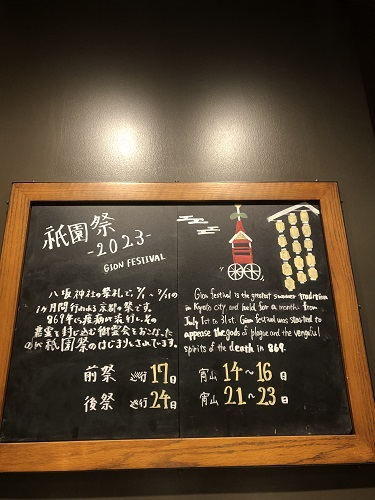 祇園祭
-2023-
GION FESTIVAL
八坂神社の祭礼で、7/1〜7/31の
1ヶ月間行われる京都の祭です。
869年に疫病が流行し、その
悪霊を封じ込む御霊会をおこなった
のが祇園祭のはじまりとされています。
前祭 巡行 17日
後祭 巡行 24日
Gion festival is the greatest summer tradition
in Kyoto city and held for a month from
July 1st to 31st. Gion festival was started to
appease the gods of plague and the vengeful
spirits of the death in 869.
宵山 14〜16日
宵山 21〜23日